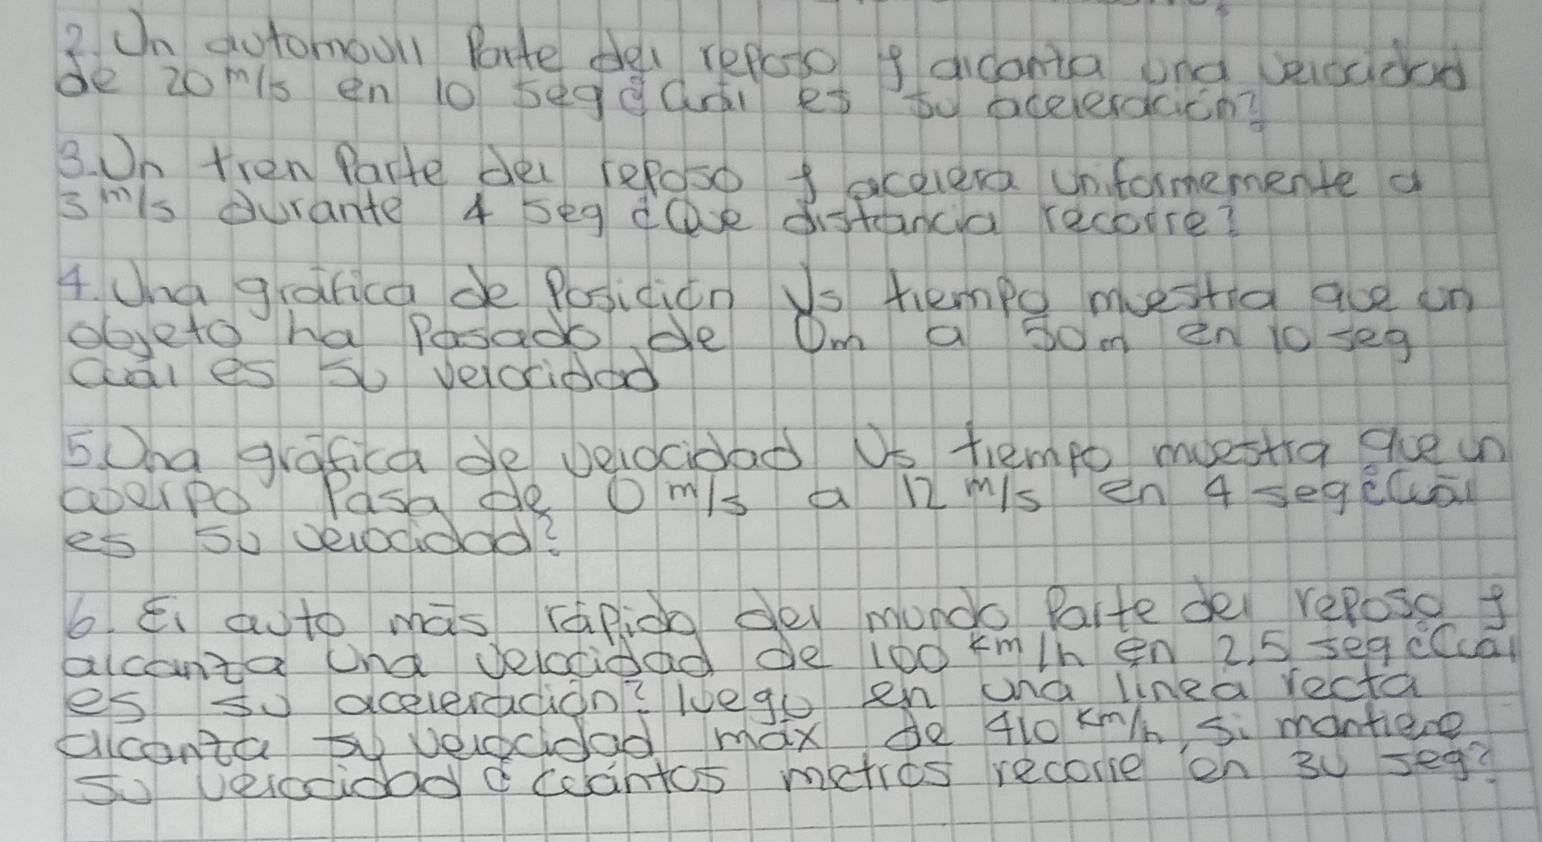 2. Un automovil Parte del reposo y alcanza una velocidad
de 20 m/s en 10 seg ¿Cuál es su aceleración?
3. Un tren Parte del reposo y acelera uniformemente a
3 m/s durante 4 seg ¿Que distancia recorre?
4. Una gráfica de Posición Vs tiempo muestra que un
objeto ha Pasado de 0m a 50m en 10 seg
Cual es su velocidad
5. Una gráfica de velocidad Vs tiempo muestra que un
cuerpo Pasa de 0 m/s a 12 m/s en 4 seg ¿Cuál
es su velocidad?
6. El auto más rápido del mundo Parte del reposo y
alcanza una velocidad de 100 km/h en 2,5 seg ¿Cuál
es su aceleración? luego en una linea recta
alcanza su velocidad max de 410 km/h, si mantiene
su velocidad ¿ cuántos metros recorre en 30 seg?